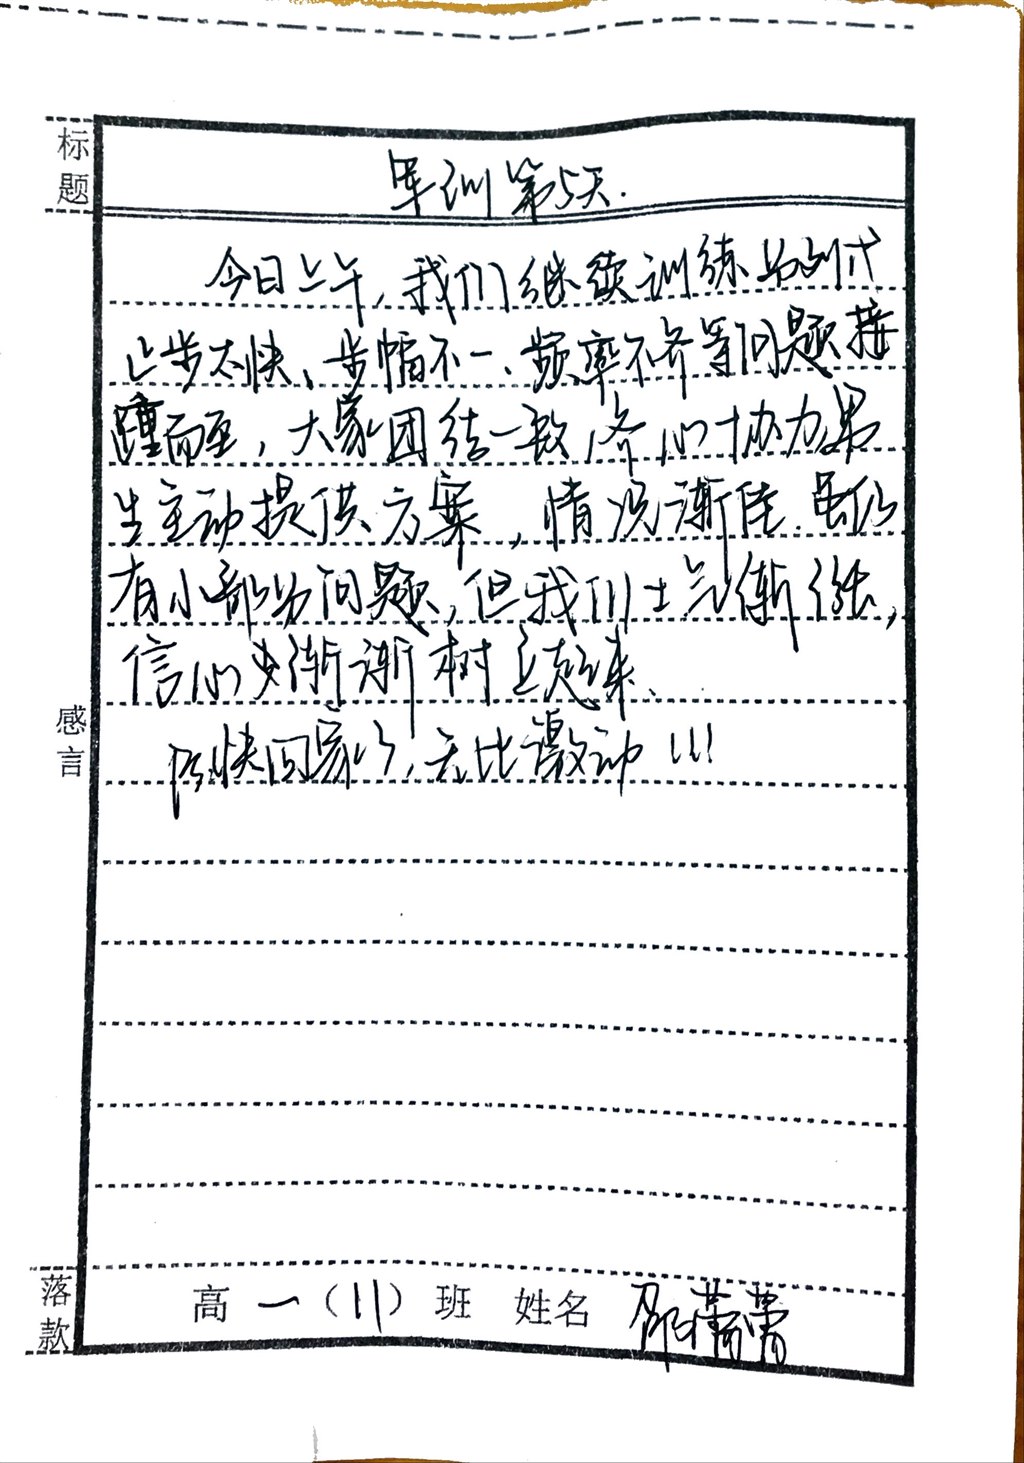 标题
军训第5天.
今日上午,我们继续训练分列式
止步太快、步幅不一、频率不齐等问题接
踵而至,大家团结一致,齐心协力,男
生主动提供方案,情况渐佳.虽仍
有小部分问题,但我们士气渐强,
信心也渐渐树立起来、
感言
快回家了,无比激动!!!
落款
高一(11)班 姓名